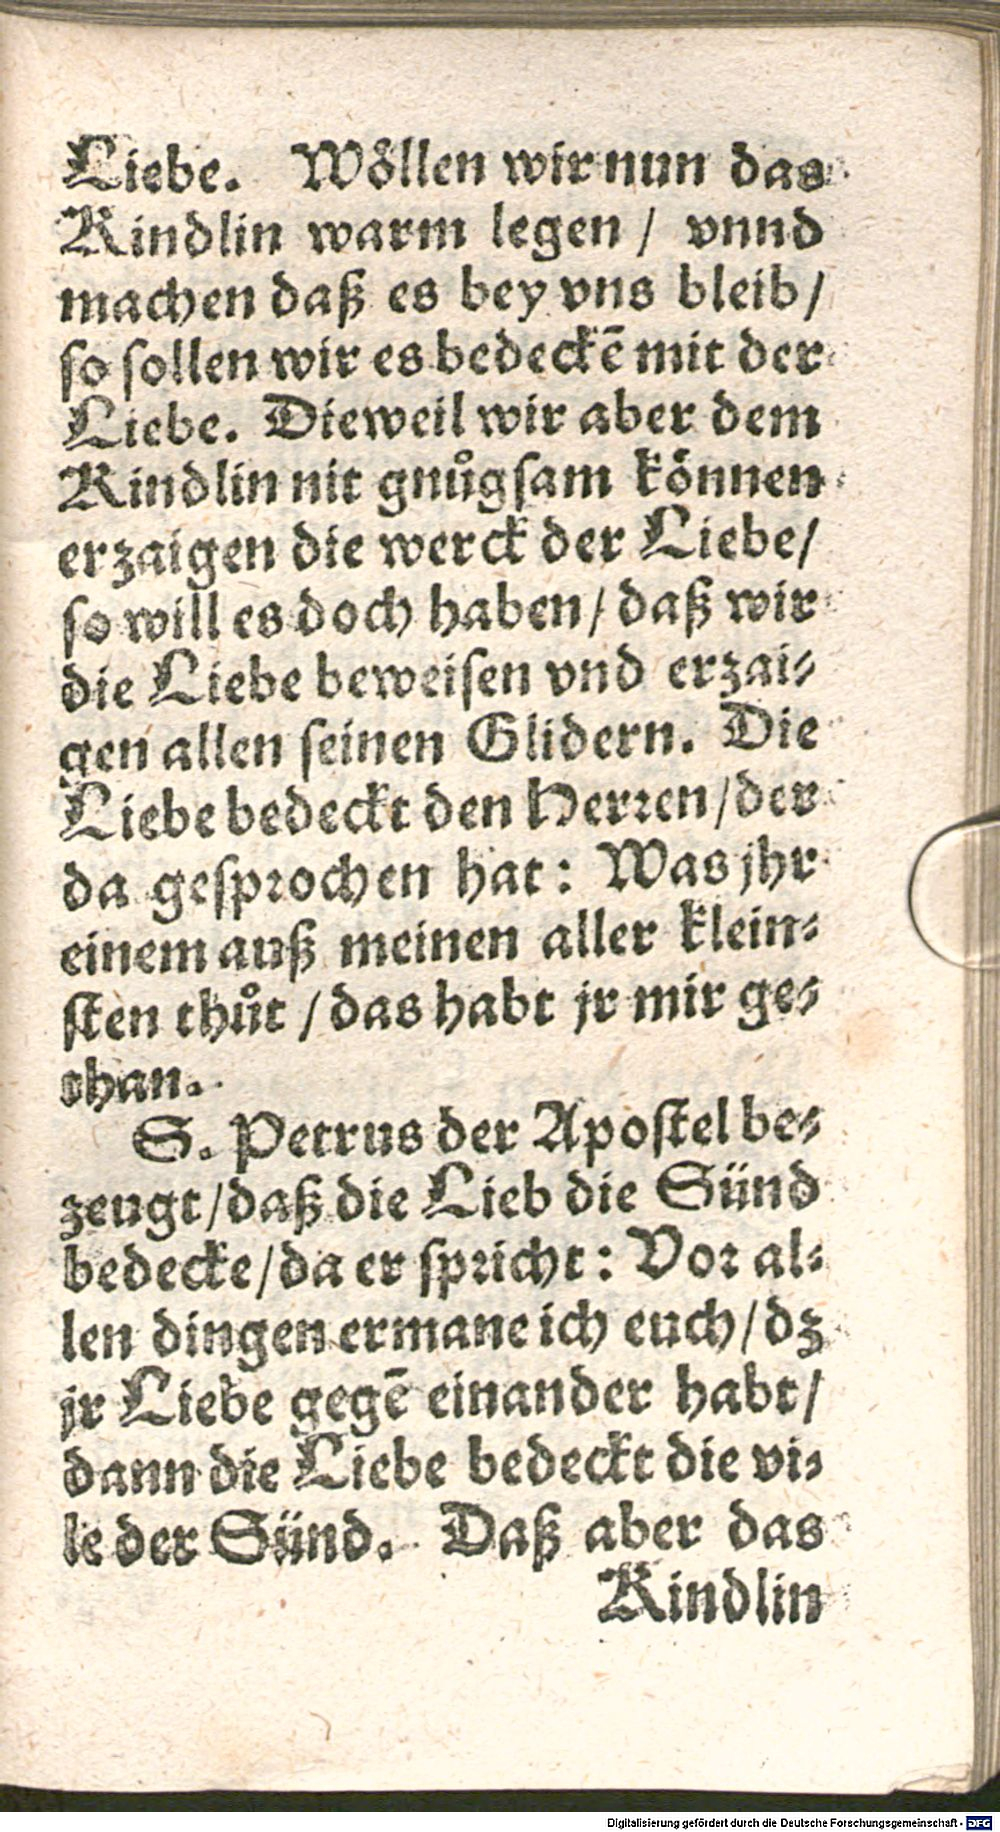 Liebe. Wöllen wir nun das
Kindlin warm legen / vnnd
machen daß es bey vns bleib /
so sollen wir es bedeckē mit der
Liebe. Dieweil wir aber dem
Kindlin nit gnůgsam können
erzaigen die werck der Liebe /
so will es doch haben / daß wir
die Liebe beweisen vnd erzai-
gen allen seinen Glidern. Die
Liebe bedeckt den Herren / der
da gesprochen hat: Was jhr
einem auß meinen aller klein-
sten thůt / das habt jr mir ge-
than.
S. Petrus der Apostel be-
zeugt / daß die Lieb die Sünd
bedecke / da er spricht: Vor al-
len dingen ermane ich euch / dz
jr Liebe gegē einander habt /
dann die Liebe bedeckt die vi-
le der Sünd. Daß aber das
Kindlin
Digitalisierung gefördert durch die Deutsche Forschungsgemeinschaft - DFG